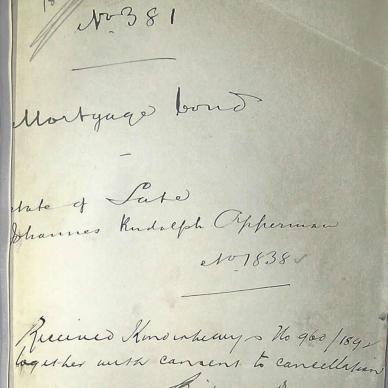 No 381
Mortgage Bond
state of Late
Johannes Rudolph Opperman
No 1838
Received Kinderbewys No 960/189
together with consent to cancellation